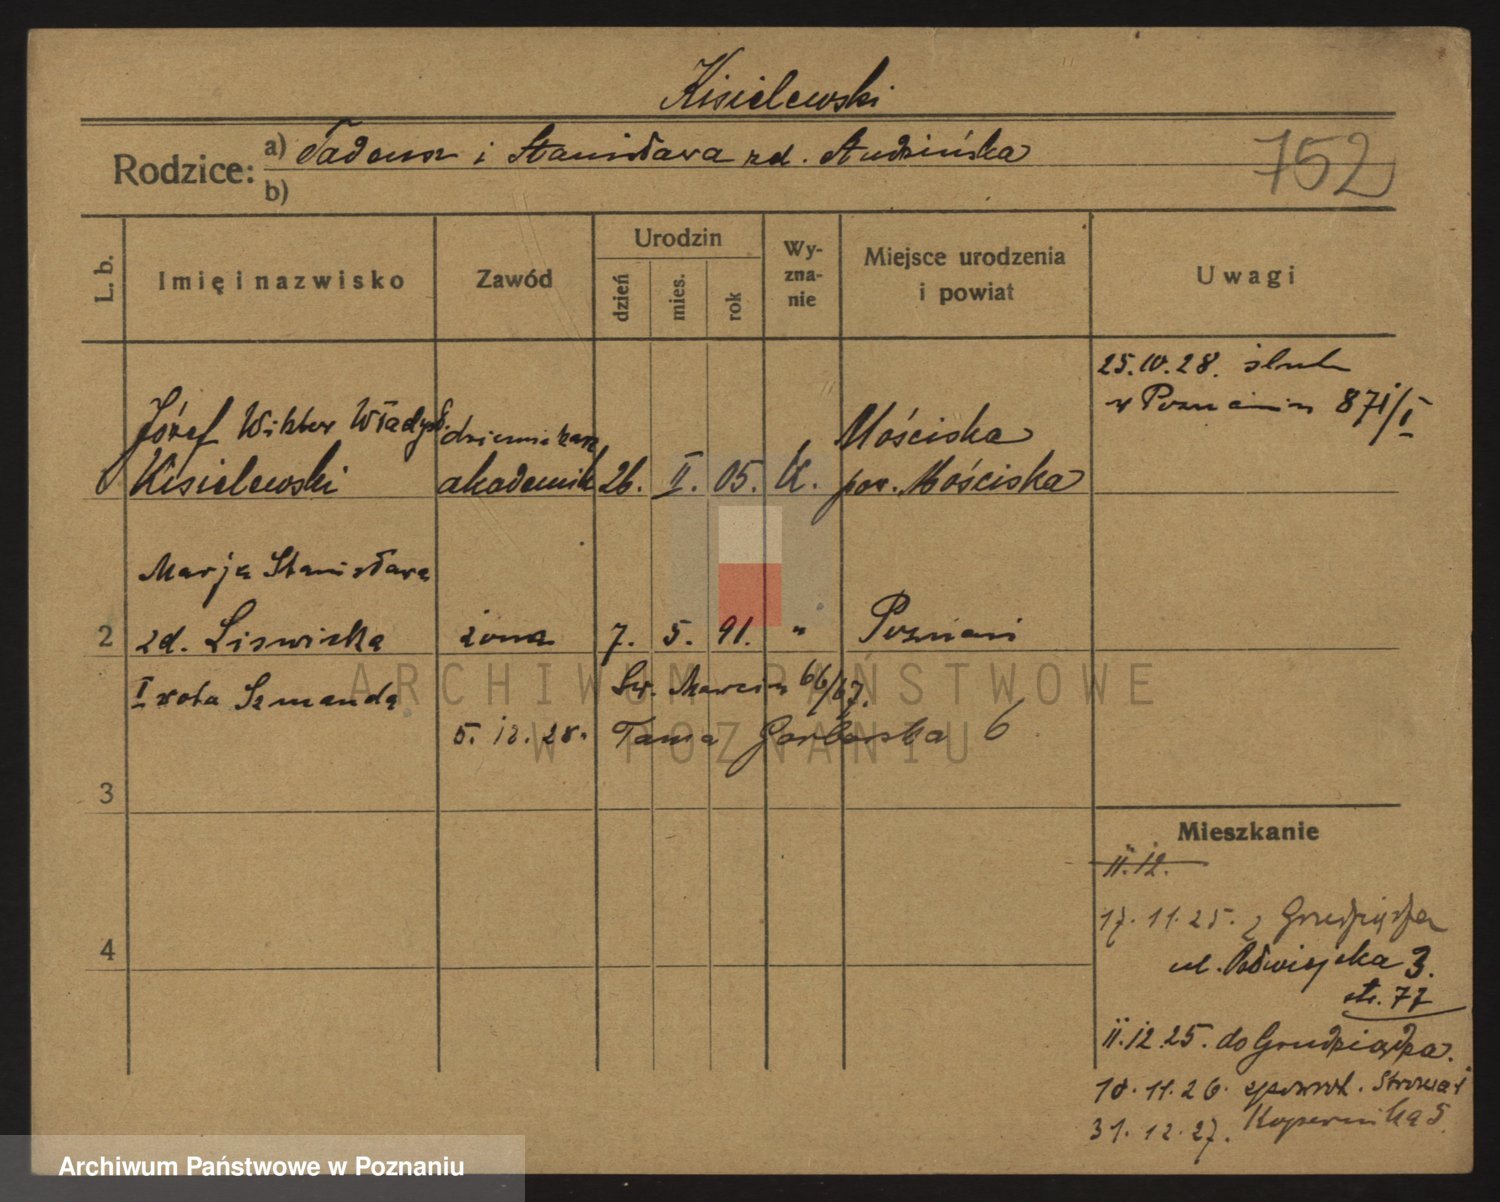 Kisielewski
752
Rodzice: a) Tadeusz i Stanisława zd. Studzińska
b)
L. b.
Imię i nazwisko
Zawód
Urodzin
dzień
mies.
rok
Wy-
zna-
nie
Miejsce urodzenia
i powiat
Uwagi
25.10.28. ślub
w Poznaniu 871/I
Józef Wiktor Władysł. dziennikarz Mościska
Kisielewski akademik 26. II. 05. k. pow. Mościska
Marja Stanisława
2 zd. żona 7. 5. 91. " Poznań
I voto Szmanda Św. Marcin 66/67.
5. 12. 28. Tama Garbarska 6
3
4
Mieszkanie
11.12.
17. 11. 25. z Grudziądza
ul. 3.
str. 77
11.12.25. do Grudziądza.
10. 11. 26. zpowrot.
31. 12. 27. Kopernika 5.
ARCHIWUM PAŃSTWOWE
W POZNANIU
Archiwum Państwowe w Poznaniu